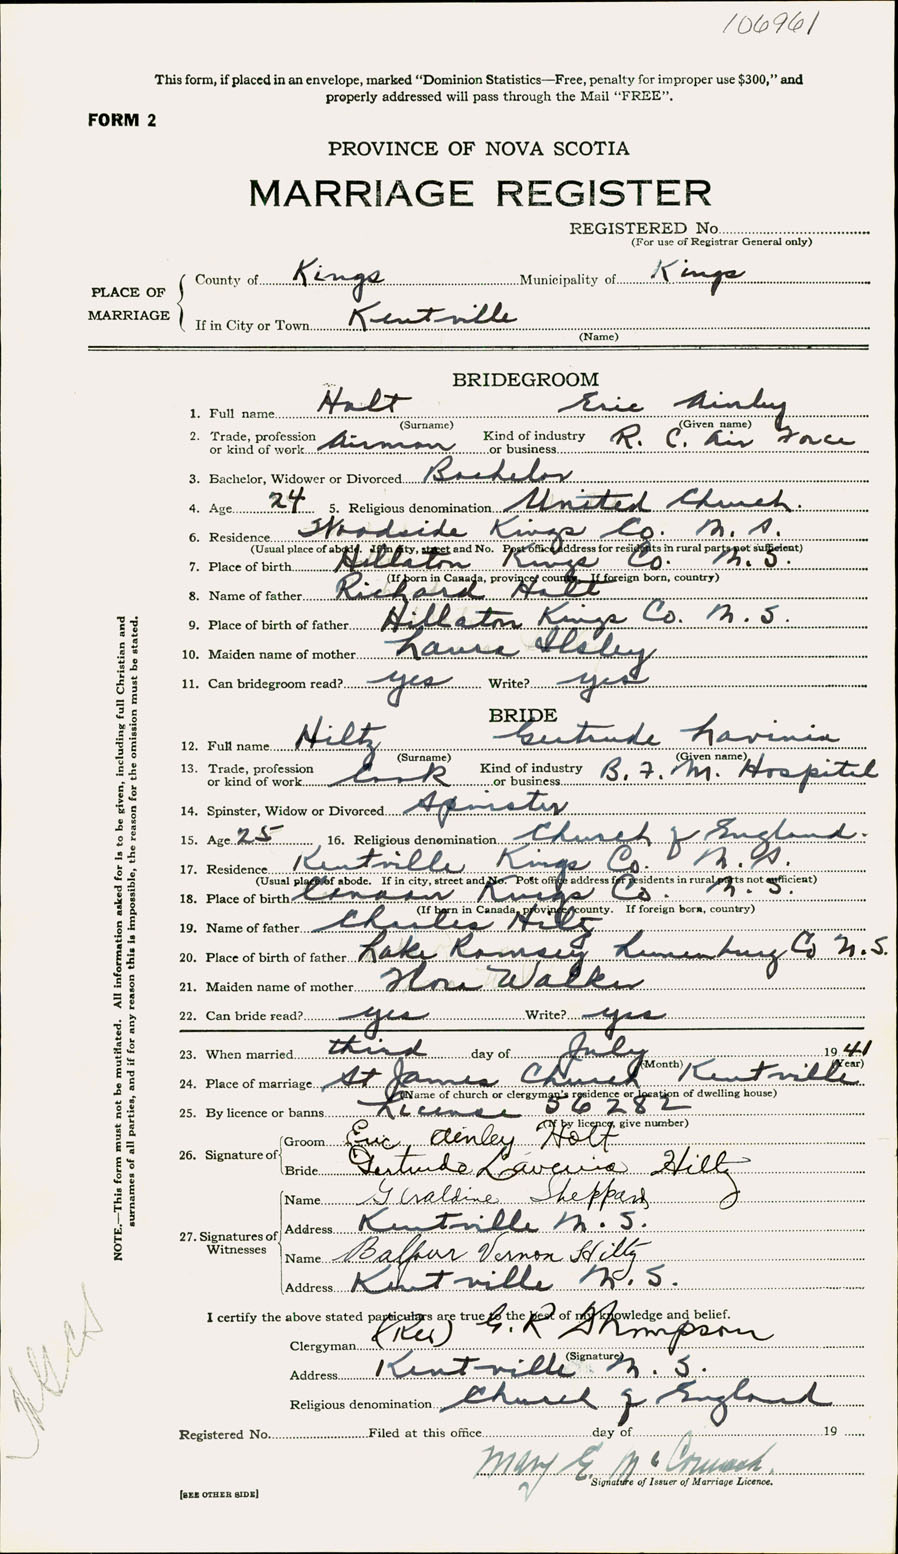 106961
This form, if placed in an envelope, marked "Dominion Statistics—Free, penalty for improper use $300," and
properly addressed will pass through the Mail "FREE".
FORM 2
PROVINCE OF NOVA SCOTIA
MARRIAGE REGISTER
REGISTERED No.
(For use of Registrar General only)
PLACE OF MARRIAGE
County of Kings Municipality of Kings
If in City or Town Kentville
(Name)
BRIDEGROOM
1. Full name Holt Eric Ainley
(Surname) (Given name)
2. Trade, profession or kind of work Airman Kind of industry or business R. C. Air Force
3. Bachelor, Widower or Divorced Bachelor
4. Age 24 5. Religious denomination United Church.
6. Residence Woodside Kings Co. N. S.
(Usual place of abode. If in city, street and No. Post office address for residents in rural parts not sufficient)
7. Place of birth Hillaton Kings Co. N. S.
(If born in Canada, province county. If foreign born, country)
8. Name of father Richard Holt
9. Place of birth of father Hillaton Kings Co. N. S.
10. Maiden name of mother Laura Ilsley
11. Can bridegroom read? yes Write? yes
BRIDE
12. Full name Hiltz Gertrude Lavinia
(Surname) (Given name)
13. Trade, profession or kind of work Cook Kind of industry or business B. F. M. Hospital
14. Spinster, Widow or Divorced Spinster
15. Age 25 16. Religious denomination Church of England.
17. Residence Kentville Kings Co. N. S.
(Usual place of abode. If in city, street and No. Post office address for residents in rural parts not sufficient)
18. Place of birth Canaan Kings Co. N. S.
(If born in Canada, province county. If foreign born, country)
19. Name of father Charles Hiltz
20. Place of birth of father Lake Ramsey Lunenburg Co N.S.
21. Maiden name of mother Flora Walker
22. Can bride read? yes Write? yes
23. When married third day of July 1941
(Month) (Year)
24. Place of marriage St James Church Kentville
(Name of church or clergyman's residence or location of dwelling house)
25. By licence or banns License 56282
(If by licence, give number)
26. Signature of
Groom Eric Ainley Holt
Bride Gertrude Lavinia Hiltz
27. Signatures of Witnesses
Name Geraldine Sheppard
Address Kentville N. S.
Name Balfour Vernon Hiltz
Address Kentville N. S.
I certify the above stated particulars are true to the best of my knowledge and belief.
Clergyman (Rev) G. R Thompson
(Signature)
Address Kentville N. S.
Religious denomination Church of England
Registered No. Filed at this office day of 19
Mary E. McCormack.
Signature of Issuer of Marriage Licence.
[SEE OTHER SIDE]
NOTE.—This form must not be mutilated. All information asked for is to be given, including full Christian and
surnames of all parties, and if for any reason this is impossible, the reason for the omission must be stated.